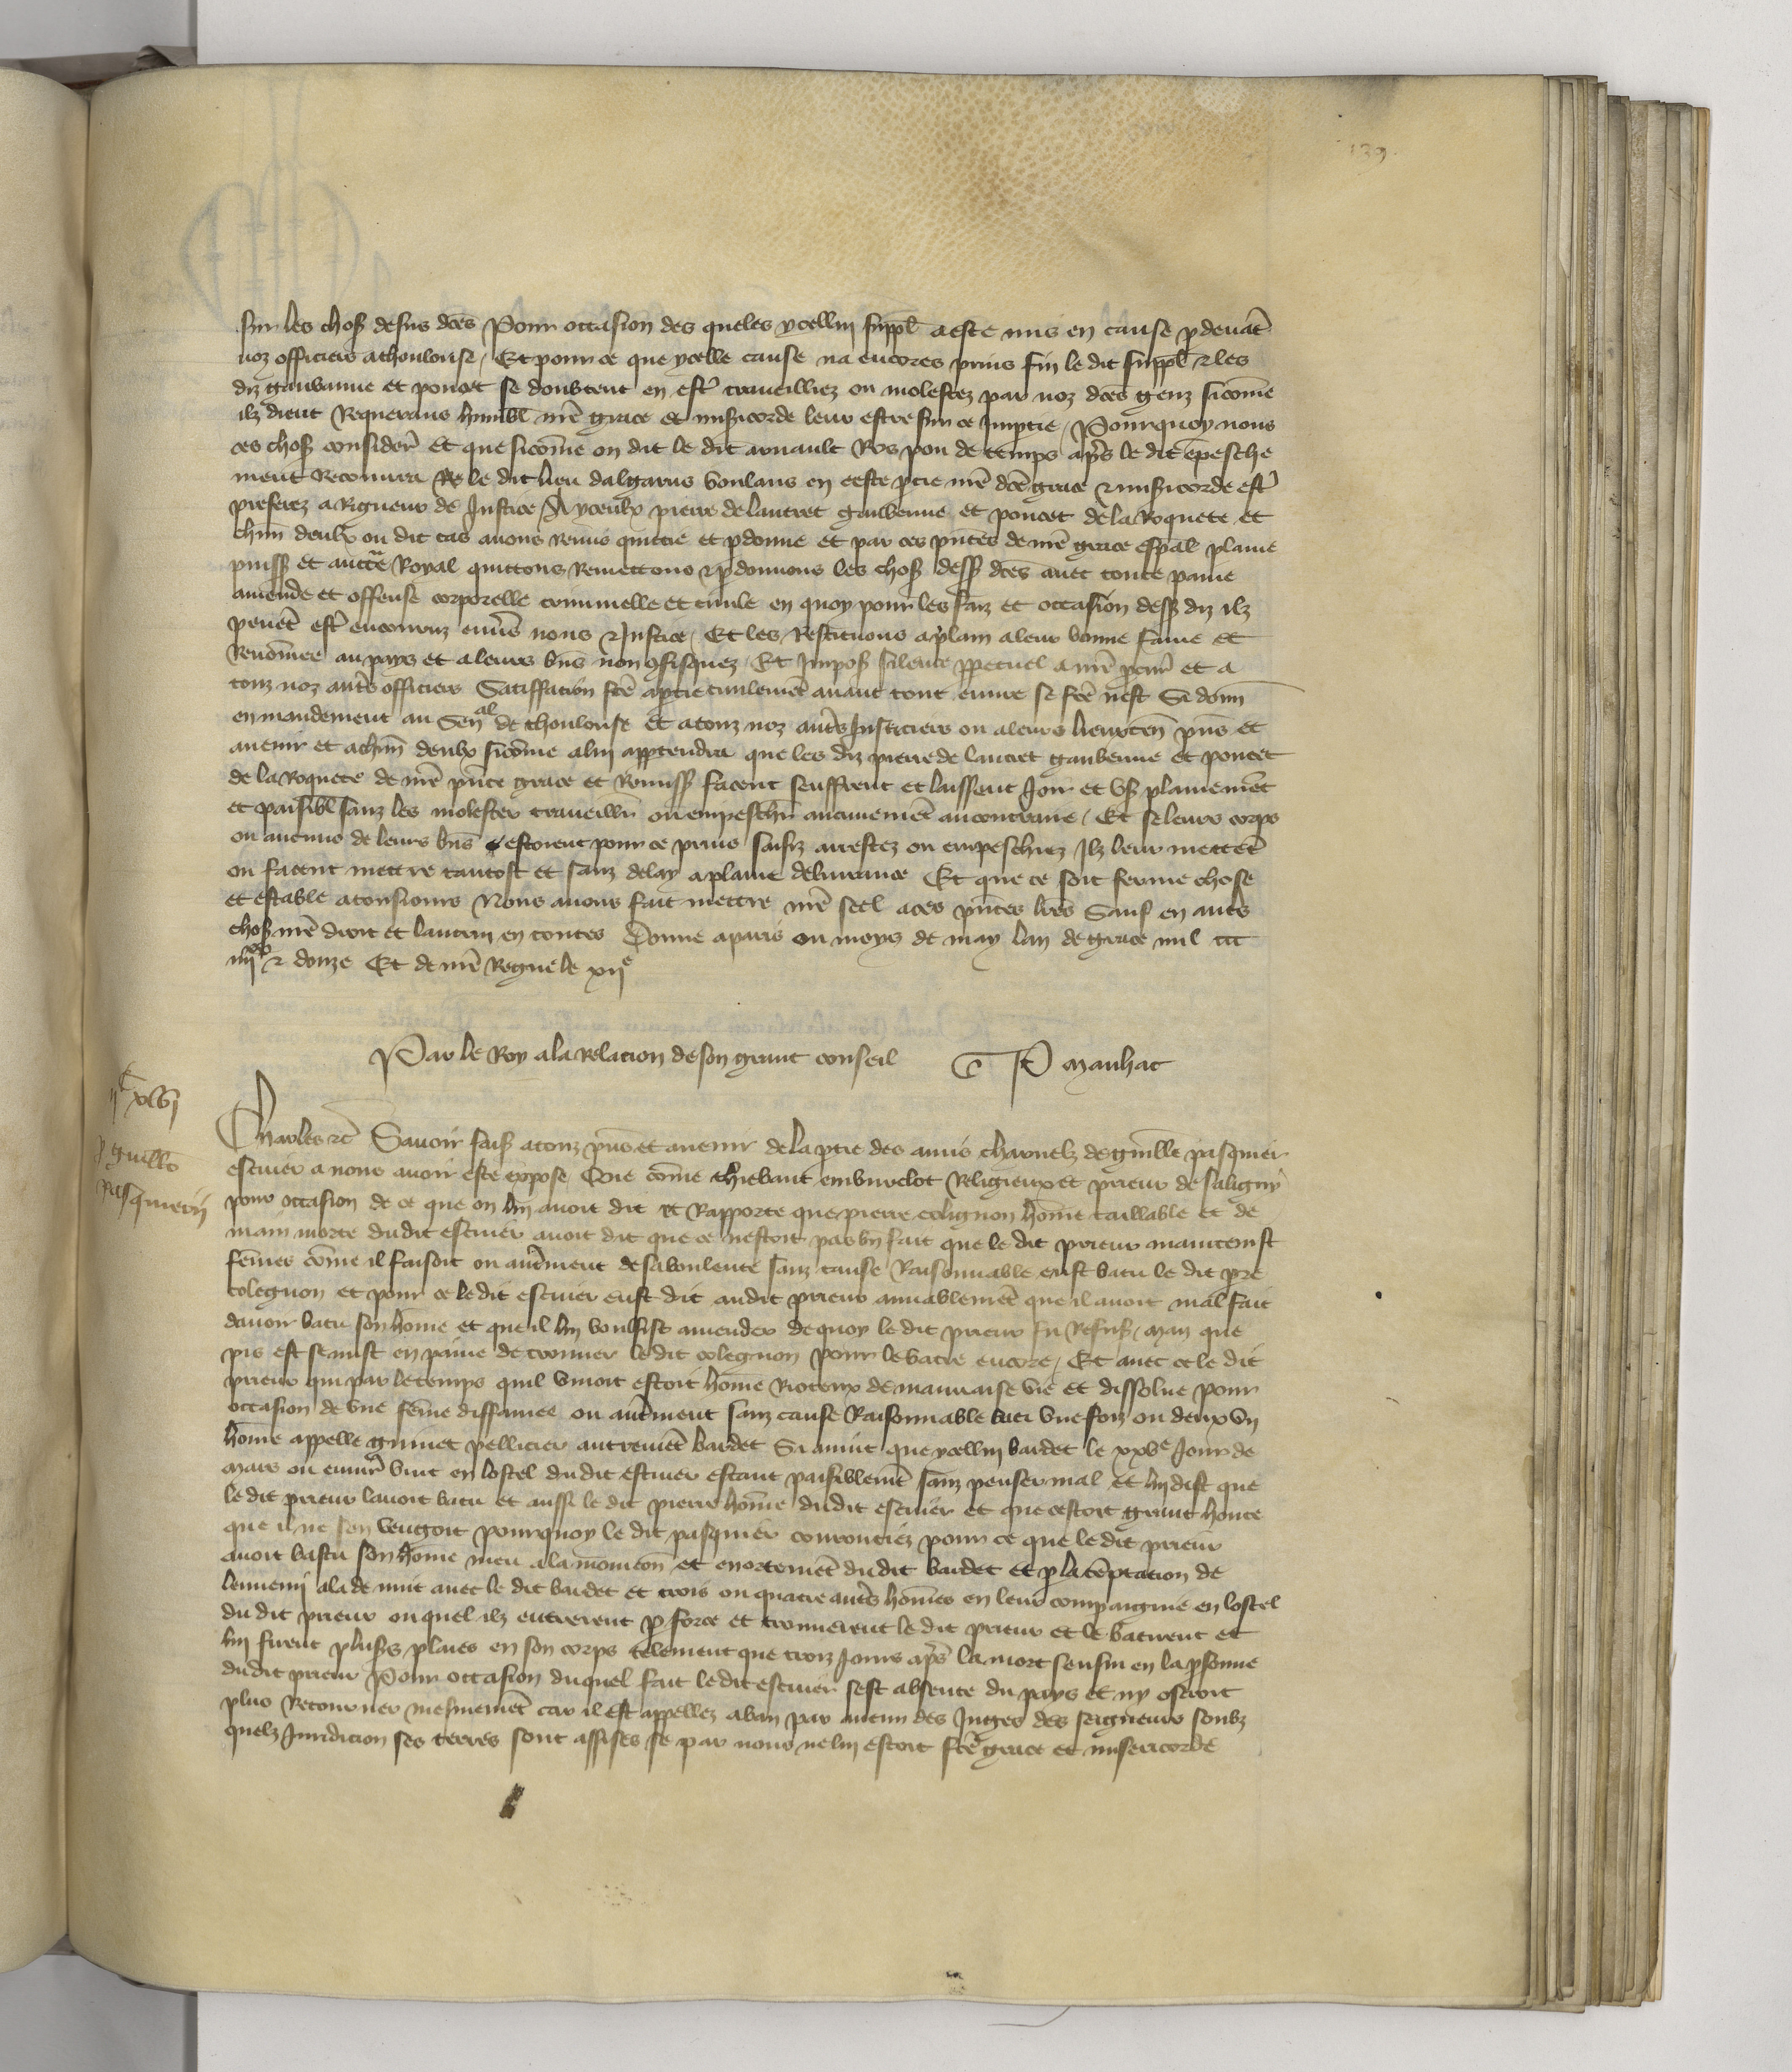 139
sur les choses dessus dces Pour occasion des queles ycellui suppl a este mis en cause pdevāt
noz officiers a thoulouse / Et pour ce que ycelle cause na encores prins fin le dit suppl & les
diz gauvanne et poncet se doubtent en estr traveilliez ou molestez par noz dces genz sicōme
ilz dient Requerans humbl nre grace et misicorde leur estre sur ce impartie / Pourquoy nous
ces choses considerees Et que sicōme on dit le dit arnault Ros pou de temps aprs le dit ēpesche
ment Recouvra le dit lieu dalgarus voulans en ceste ptie nre dce grace & misicorde estr
preferez a Rigueur de Justice / A yceulx pierre de lautret gauvenne et poncet de la Roquete et
chūn deulx ou dit cas avons remis quictie et pdonne et par ces pñtes de nre grace espal plaine
puiss et auctte Royal quittons Remettons & pdonnons les choses dess dces avec toute paine
amende et offense corporelle criminelle et civile en quoy pour les faiz et occasion dess diz ilz
pevent estr encouruz envs nous & Justice / Et les Restituons a plain a leur bonne fame et
Renōmee au pays et a leurs biens non cōfisquez / Et Imposons silence ppetuel a nre pcur et a
touz noz autres officiers Satiffacion fce a ptie civilemēt avant tout euvre se fce nest Si donn
en mandement au Senal de thoulouse et a touz noz autres Justiciers ou a leurs lieuxten pns et
avenir et a chūn deulx sicōme a lui apptendra que les diz pierre de lautret gauvenne et poncet
de la Roquete de nre pñte grace et Remiss facent seuffrent et laissent Joir et user plainemēt
et paisibl sanz les molester traveillr ou empeschr aucunemēt au contraire / Et se leurs corps
ou aucuns de leurs biens estoient pour ce prins saisiz arrestez ou empeschiez Ilz leur mettēt
ou facent mettre tantost et sanz delay a plaine delivrance Et que ce soit ferme chose
et estable a tousiours Nous avons fait mettre nre seel a ces pñtes lres Sauf en autres
choses nre droit et lautrui en toutes Donne a paris ou moys de may lan de grace mil ccc
iiiixx & douze Et de nre Regne le xiie
Par le Roy a la Relacion de son grant conseil P Manhac
iic xlvj
p guillo
Pasquerij
Charles &c Savoir fais a touz pns et avenir de la ptie des amis charnelz de guille pasquier
escuier a nous avoir este expose Que cōme thiebaut emburelot Religieux et prieur de saligny
pour occasion de ce que on lui avoit dit et Rapporte que pierre colignon hōme taillable et de
main morte du dit escuier avoit dit que ce nestoit pas bn fait que le dit prieur maintenist
fēmes cōme il faisoit ou autrement de sa voulente sanz cause Raisonnable eust batu le dit pre
colegnon et pour ce le dit escuier eust dit au dit prieur amiablemēt que il avoit mal fait
davoir batu son hōme et que il lui voulsist amender de quoy le dit prieur fu Refus / maiz que
pis est se mist en paine de trouver le dit colegnon pour le batre encore / Et avec ce le dit
prieur qui par le temps quil vivoit estoit hōme Rioteux de mauvaise vie et dissolue pour
occasion de une fēme diffamee ou autrement sanz cause Raisonnable bati une foiz ou deux un
hōme appelle guiniet pellicier autremēt bardet Si avint que ycellui bardet le xxve Jour de
mars ou environ vint en lostel du dit escuier estant paisiblemēt sanz penser mal et lui dist que
le dit prieur lavoit batu et aussi le dit pierre hōme du dit escuier et que cestoit grant honte
que il ne sen vengoit pourquoy le dit pasquier courouciez pour ce que le dit prieur
avoit bastu son hōme meu a la monicōn et enortemēt du dit bardet et p la tēptacion de
lennemi ala de nuit avec le dit bardet et trois ou quatre autres hōmes en leur compaignie en lostel
du dit prieur ou quel ilz entrerent p force et trouverent le dit prieur et le batirent et
lui firent pluss plaies en son corps telement que troiz Jours aprs la mort sensui en la psonne
du dit prieur Pour occasion du quel fait le dit escuier sest absente du pays et ny oseroit
plus Retourner mesmemēt car il est appellez a ban par aucun des Juges des seigneurs soubz
quelz Juridicion ses terres sont assises se par nous ne lui estoit fce grace et misericorde